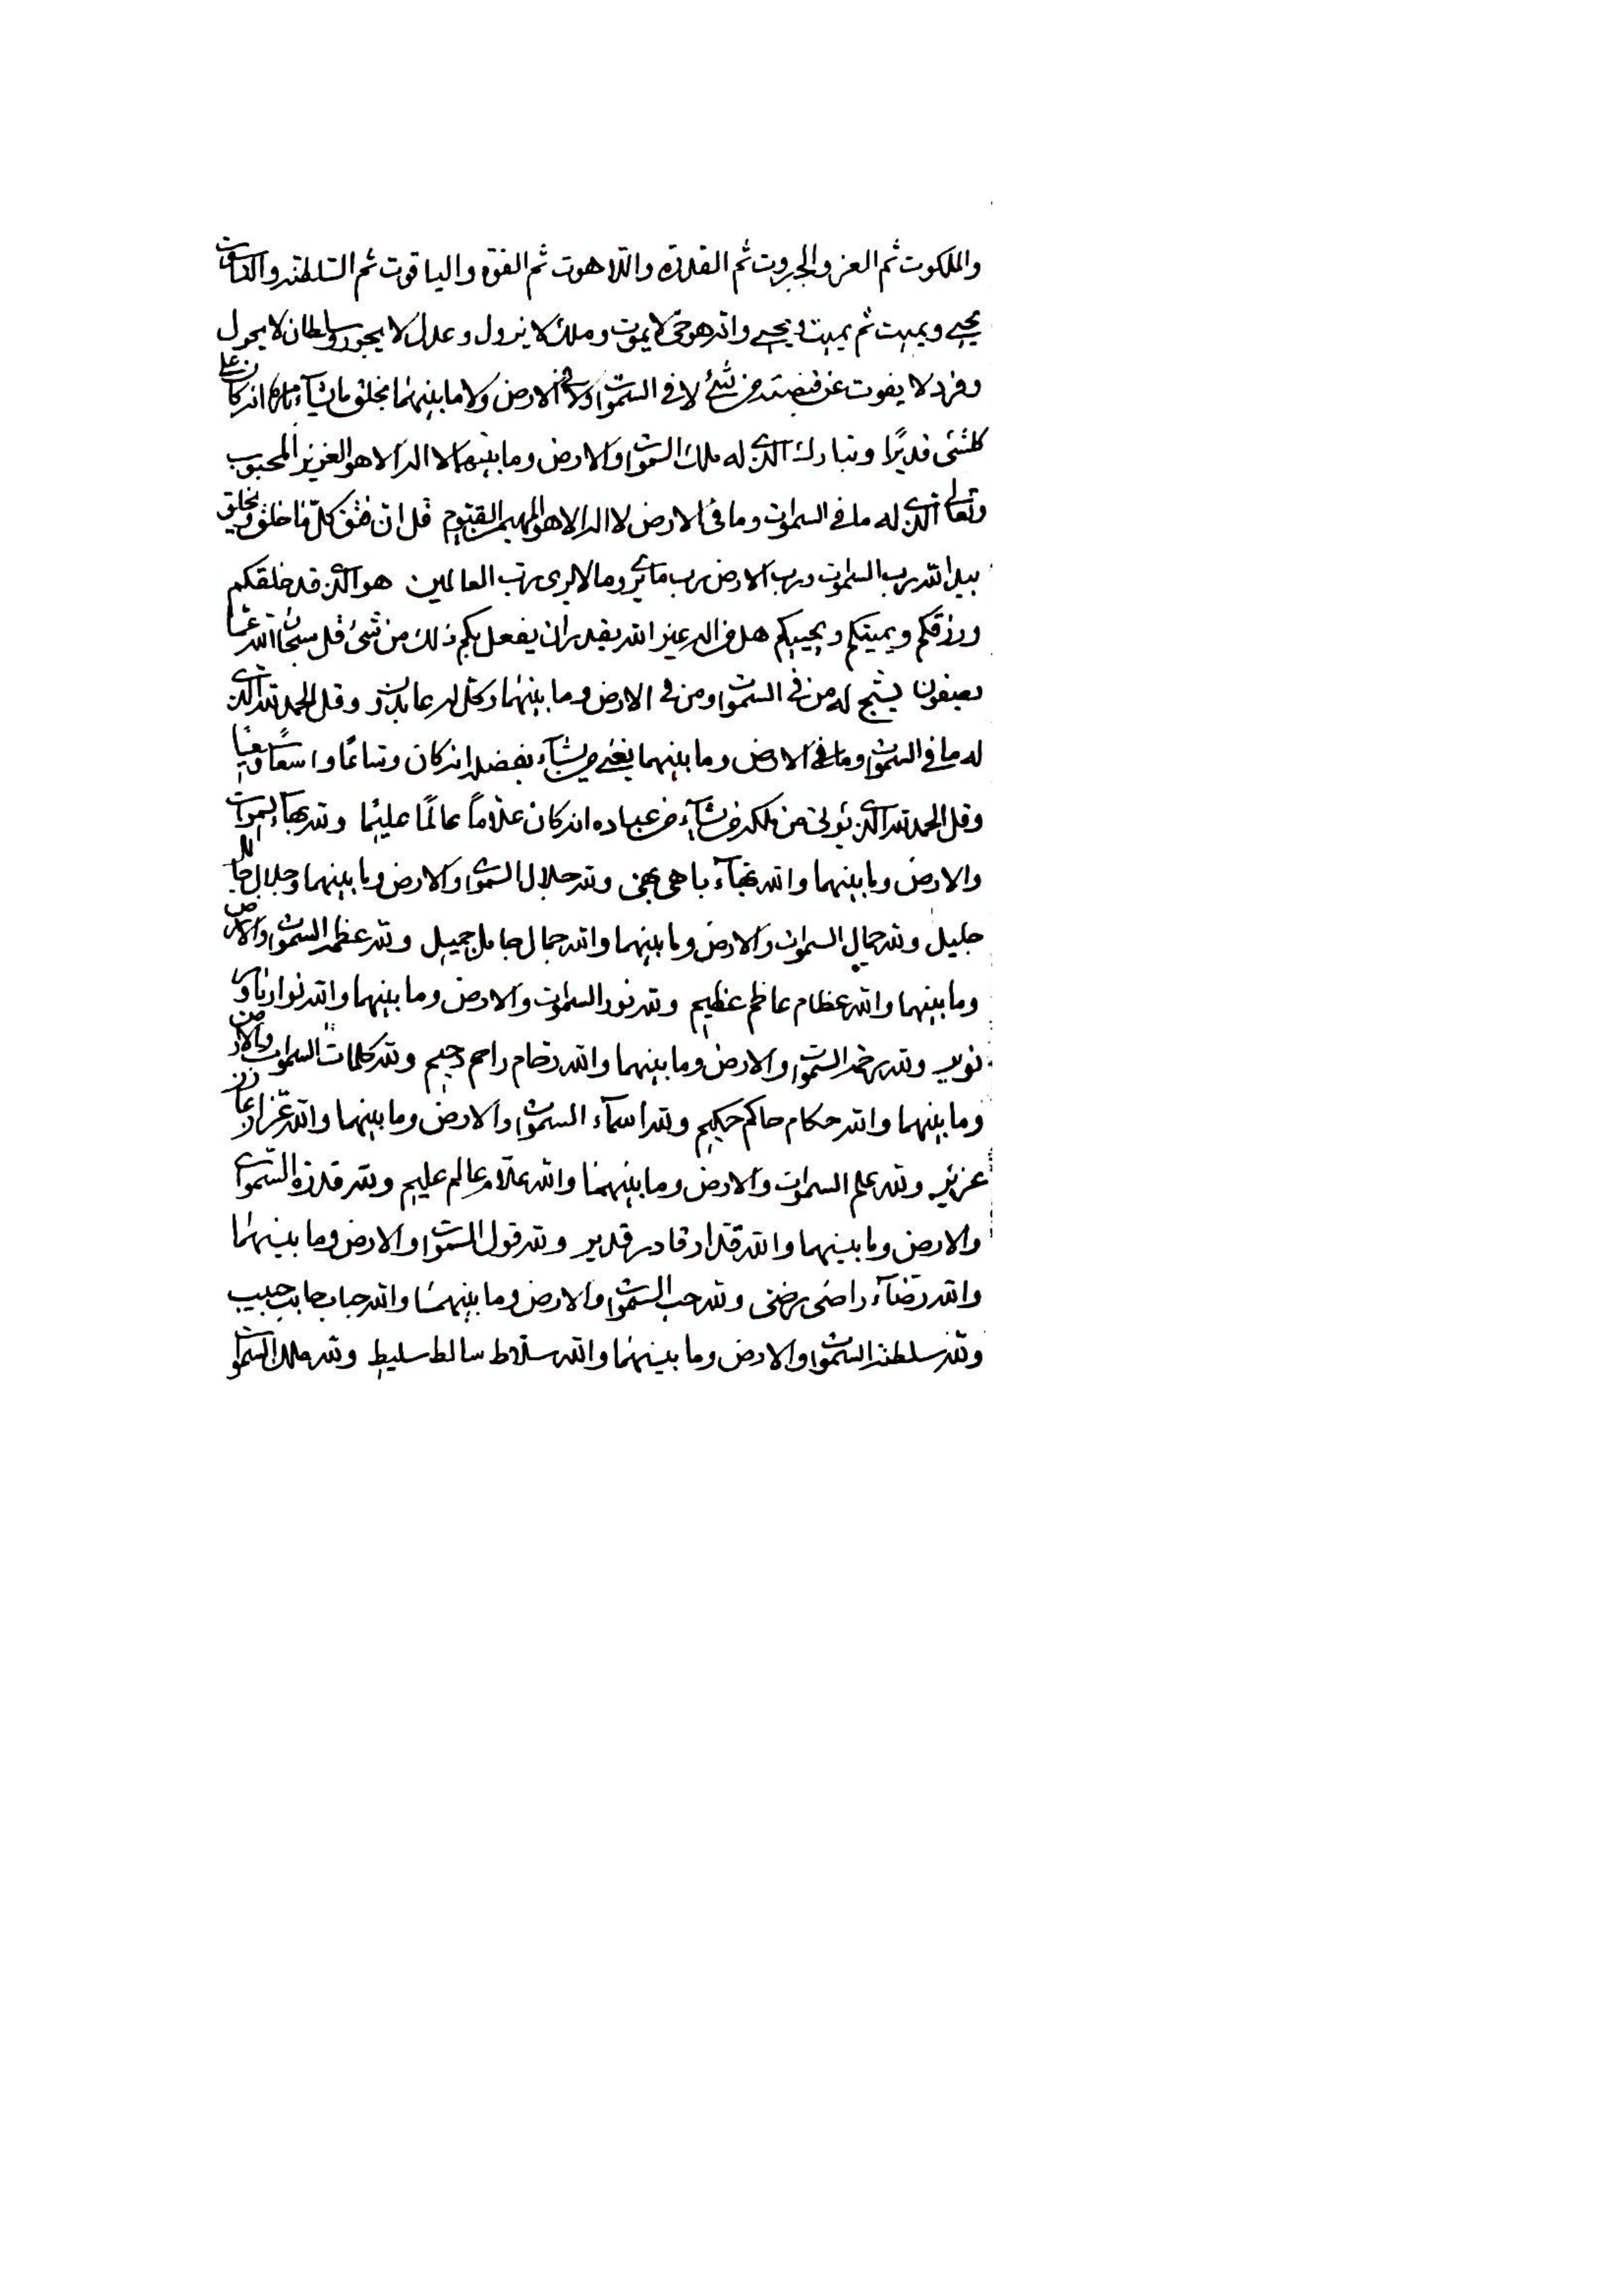 والملكوت ثم العز والجبروت ثم القدرة واللاهوت ثم القوة والياقوت ثم السلطنة والناسوت
يحيي ويميت ثم يميت ويحيي وانه هو حي لا يموت وملك لا يزول وعدل لا يجور وسلطان لا يحول
وفرد لا يفوت عن قبضته من شئ لا في السموات ولا في الارض ولا ما بينهما يخلق ما يشاء بامره انه كان على
كلشئ قديرًا وتبارك الذي له ملك السموات والارض وما بينهما لا اله الا هو العزيز المحبوب
وتعالى الذي له ما في السموات وما في الارض لا اله الا هو المهيمن القيوم قل ان كل ما خلق ويخلق
بيد الله رب السموات ورب الارض رب ما يرى وما لا يرى رب العالمين هو الذي قد خلقكم
ورزقكم ويميتكم ويحييكم هل من اله غير الله يقدر ان يفعل بكم ذلك من شئ قل سبحان الله عما
يصفون يسبح له من في السموات ومن في الارض وما بينهما وكل له عابدون وقل الحمد لله الذي
له ما في السموات وما في الارض وما بينهما يغني من يشاء بفضله انه كان وساعًا واسعًا وسيعًا
وقل الحمد لله الذي يؤتي من ملكه من يشاء من عباده انه كان علامًا عالمًا عليمًا ولله بهاء السموات
والارض وما بينهما والله بهاء باهي بهي ولله جلال السموات والارض وما بينهما والله جلال جالل
جليل ولله جمال السموات والارض وما بينهما والله جمال جامل جميل ولله عظمة السموات والارض
وما بينهما والله عظام عاظم عظيم ولله نور السموات والارض وما بينهما والله نوار ناور
نوير ولله رحمة السموات والارض وما بينهما والله رحام راحم رحيم ولله كلمات السموات والارض
وما بينهما والله حكام حاكم حكيم ولله اسماء السموات والارض وما بينهما والله عزاز عازز
عزيز ولله علم السموات والارض وما بينهما والله علام عالم عليم ولله قدرة السموات
والارض وما بينهما والله قدار قادر قدير ولله قول السموات والارض وما بينهما
والله رضاء راضي رضي ولله حب السموات والارض وما بينهما والله حباب حابب حبيب
ولله سلطنة السموات والارض وما بينهما والله سلاط سالط سليط ولله ملك السموات